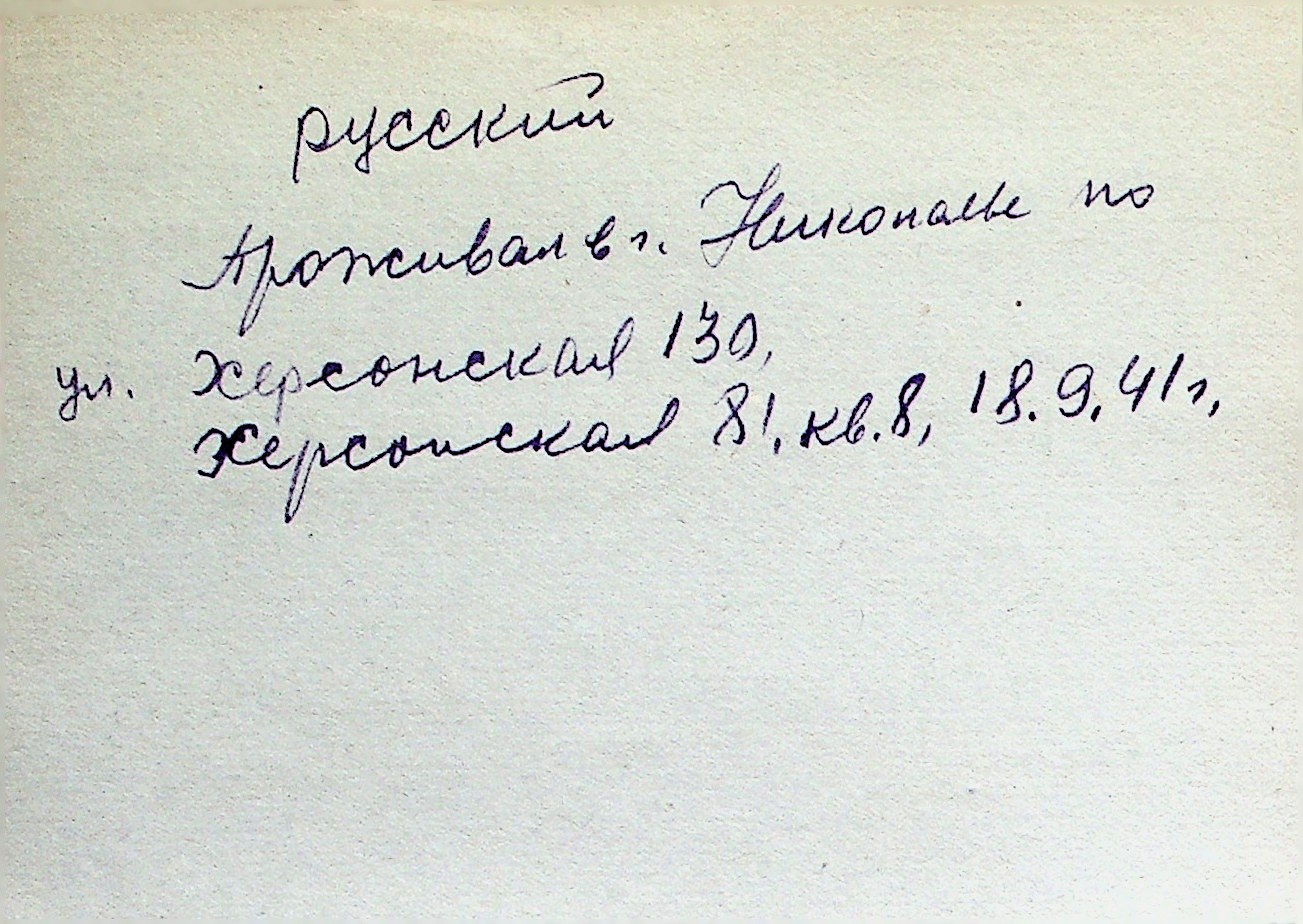 русский
Проживал в г. Никополе по
ул. Херсонская 130,
Херсонская 81, кв. 8, 18.9.41г,